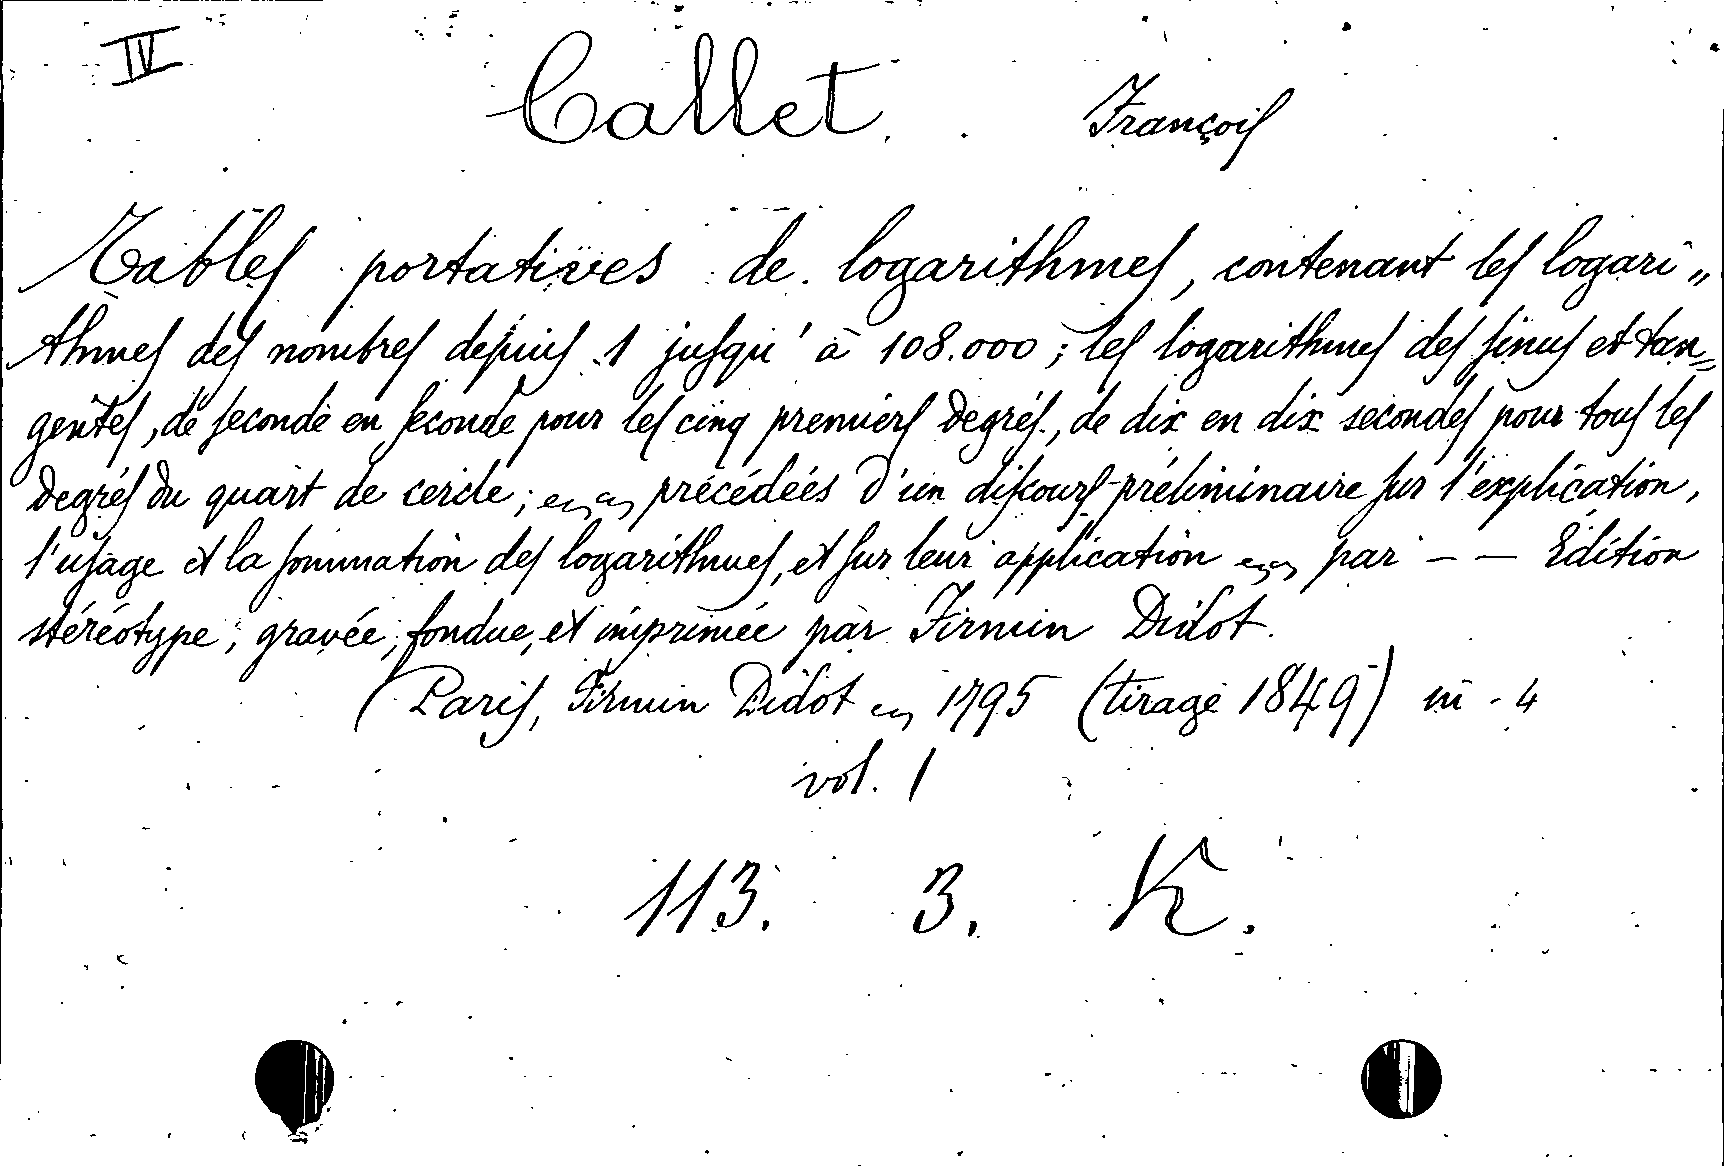 IV
Callet. François
Tables portatives de logarithmes, contenant les logari„
thmes des nombres depuis 1 jusqu'à 108.000 ; les logarithmes des sinus et tan„
gentes, de seconde en seconde pour les cinq premiers degrés, de dix en dix secondes pour tous les
degrés du quart de cercle ; précédées d'un discours préliminaire sur l'explication,
l'usage et la sommation des logarithmes, et sur leur application par – – Edition
stéréotype, gravée, fondue, et imprimée par Firmin Didot.
(Paris, Firmin Didot 1795 (tirage 1849) in - 4
vol. 1
113. 3. K.